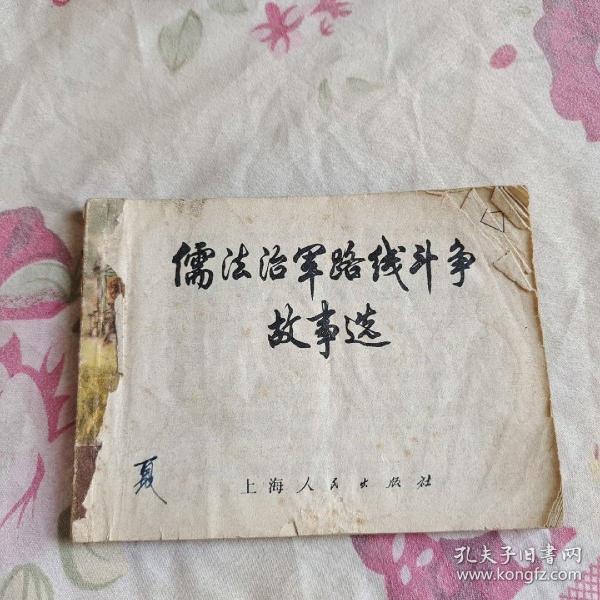 儒法治军路线斗争
故事选
夏
上海人民出版社
孔夫子旧书网
www.kongfz.com